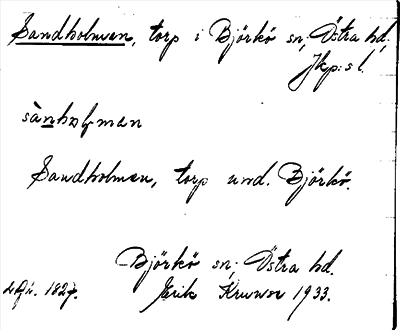 Sandholmen, torp i Björkö sn, Östra hd,
Jkp:s l.
sànhɔḷman
Sandholmen, torp und. Björkö.
Björkö sn, Östra hd.
1827. Erik 1933.